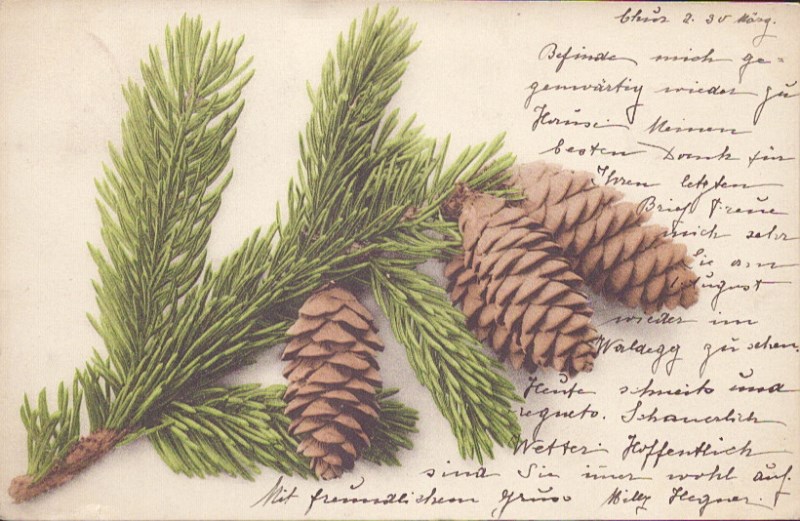 Chur 2. 30 März.
Befinde mich ge-
genwärtig wieder zu
Hause. Meinen
besten Dank für
Ihren letzten
Brief. Freue
mich sehr
Sie am
1. August
wieder im
Waldegg zu sehen.
Heute schneits und
regnets. Schauerlich
Wetter. Hoffentlich
sind Sie imer wohl auf.
Mit freundlichem Gruss Milly Hegner.